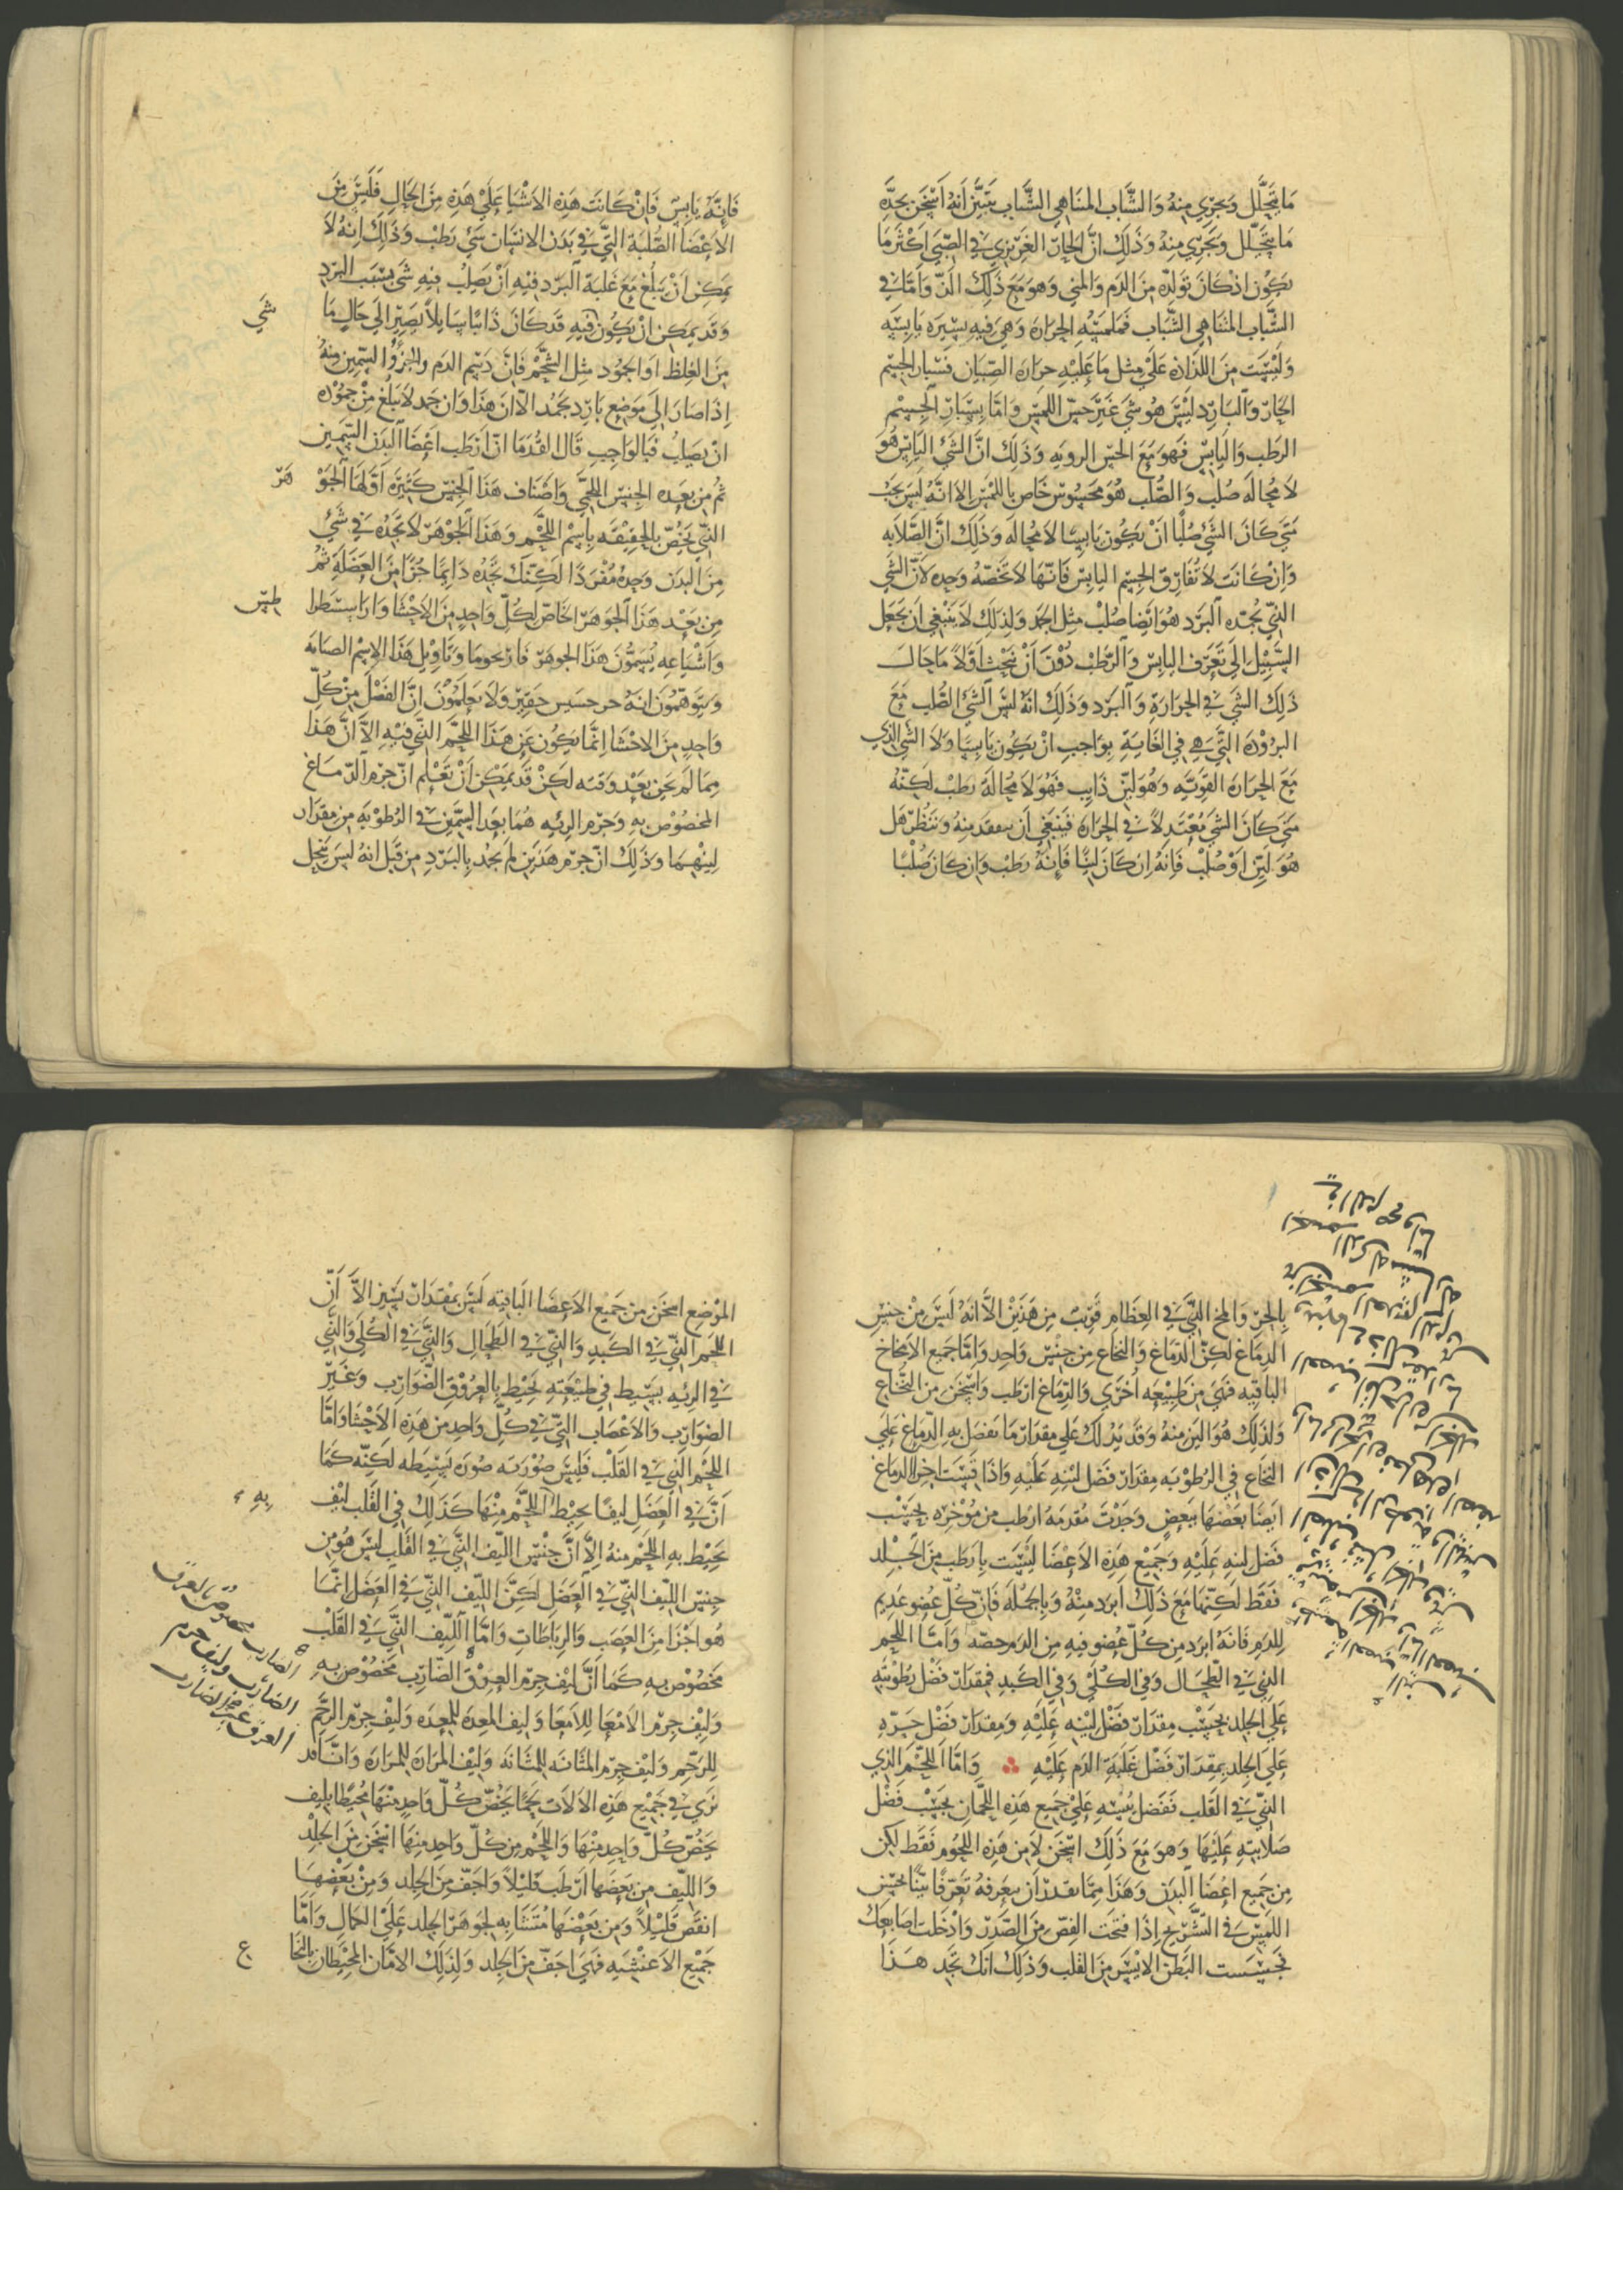 ما يتحلل ويجري منه والشاب المناهي الشباب يتبين أنه أسخن بحدة
ما يتحلل ويجري منه وذلك ان الحار الغريزي في الصبي اكثر ما
يكون اذ كان تولده من الدم والمني وهو مع ذلك الذ واما في
الشباب المتناهي الشباب فملمسه الحرارة وهي فيه يسيرة يابسة
وليست من اللذاذة على مثل ما عليه حرارة الصبيان فسبار الجسم
الحار والبارد ليس هو شي غير حس اللمس واما سبار الجسم
الرطب واليابس فهو مع الحس الروية وذلك ان الشي اليابس هو
لا محالة صلب والصلب هو محسوس خاص باللمس الا انه ليس يجب
متى كان الشي صلبا ان يكون يابسا لا محالة وذلك ان الصلابة
وان كانت لا تفارق الجسم اليابس فانها لا تخصه وحده لان الشي
الذي يجمده البرد هو ايضا صلب مثل الجمد ولذلك لا ينبغي ان يجعل
السبيل الى تعرف اليابس والرطب دون ان نبحث اولا ما حال
ذلك الشي في الحرارة والبرد وذلك انه ليس الشي الصلب مع
البرودة التي هي في الغاية بواجب ان يكون يابسا ولا الشي الذي
مع الحرارة القوية وهو لين ذايب فهو لا محالة رطب لكنه
متى كان الشي معتدلا في الحرارة فينبغي ان يتفقد منه وتنظر هل
هو لين او صلب فانه ان كان لينا فانه رطب وان كان صلبا
فانه يابس فان كانت هذه الاشيا علي هذه من الحال فليس من
الاعضا الصلبة التي في بدن الانسان شي رطب وذلك انه لا
يمكن ان يبلغ مع غلبة البرد فيه ان يصلب فيه شي بسبب البرد
وقد يمكن ان يكون فيه قد كان ذايبا سايلا يصير الي حال ما
شي
من الغلظ او الجمود مثل الشحم فان دسم الدم والجزو السمين منه
اذا صار الي موضع بارد يجمد الا ان هذا وان جمد لا يبلغ من جموده
ان يصلب فبالواجب قال القدما ان ارطب اعضا البدن السمين
ثم من بعده الجنس اللحمي واصناف هذا الجنس كثيرة اولها الجو
هر
الذي يخص بالحقيقة باسم اللحم وهذا الجوهر لا تجده في شي
من البدن وحده مفردا لكنك تجده دايما جزا من العضلة ثم
من بعد هذا الجوهر الخاص لكل واحد من الاحشا وارا سسطرا
طس
واشياعه يسمون هذا الجوهر فارنحوما وتاويل هذا الاسم الصبابة
ويتوهمون انه حسيس حقير ولا يعلمون ان الفضل من كل
واحد من الاحشا انما يكون عن هذا اللحم الذي فيه الا ان هذا
مما لم يحن بعد وقته لكن قد يمكن ان تعلم ان جرم الدماغ
المخصوص به وجرم الرية هما بعد السمين في الرطوبة من مقدار
لينهما وذلك ان جرم هذين لم يجمد بالبرد من قبل انه ليس ينحل
بالحر والمخ الذي في العظام قريب من هذين الا انه ليس من جنس
الدماغ لكن الدماغ والنخاع من جنس واحد واما جميع الامخاخ
الباقية فهي من طبيعة اخري والدماغ ارطب واسخن من النخاع
ولذلك هو الين منه وقد يدلك على مقدار ما يفضل به الدماغ علي
النخاع في الرطوبة مقدار فضل لينه عليه واذا قيست اجزا الدماغ
ايضا بعضها ببعض وجدت مقدمه ارطب من مؤخره بحسب
فضل لينه عليه وجميع هذه الاعضا ليست بارطب من الجلد
فقط لكنها مع ذلك ابرد منه وبالجملة فان كل عضو عديم
للدم فانه ابرد من كل عضو فيه من الدم حصة واما اللحم
الذي في الطحال وفي الكلي وفي الكبد فمقدار فضل رطوبته
علي الجلد بحسب مقدار فضل لينه عليه ومقدار فضل حره
علي الجلد بمقدار فضل غلبة الدم عليه واما اللحم الذي
الذي في القلب تفضل يبسه علي جميع هذه اللحمان بحسب فضل
صلابته عليها وهو مع ذلك اسخن لا من هذه اللحوم فقط لكن
من جميع اعضا البدن وهذا مما تقدر ان تعرفه تعرفا بينا بحس
اللمس في التشريح اذا فتحت القص من الصدر وادخلت اصابعك
فجسست البطن الايسر من القلب وذلك انك تجد هذا
الموضع اسخن من جميع الاعضا الباقية ليس بمقدار يسير الا ان
اللحم الذي في الكبد والذي في الطحال والذي في الكلي والذي
في الرية بسيط في طبيعته يحيط بالعروق الضوارب وغير
الضوارب والاعصاب التي في كل واحد من هذه الاحشا واما
اللحم الذي في القلب فليس صورته صورة بسيطة لكنه كما
ان في العضل ليفا يحيط اللحم منها كذلك في القلب ليف
به
يحيط به اللحم منه الا ان جنس الليف الذي في القلب ليس هو من
جنس الليف الذي في العضل لكن الليف الذي في العضل انما
هو اجزا من العصب والرباطات واما الليف الذي في القلب
مخصوص به كما ان ليف جرم العرق الضارب مخصوص به
الضارب مخصوص بالعرق
الضارب وليف جرم
العرق غير الضارب
وليف جرم الامعا للامعا وليف المعدة للمعدة وليف جرم الرحم
للرحم وليف جرم المثانة للمثانة وليف المرارة للمرارة وانا قد
نري في جميع هذه الالات لحما يخص كل واحد منها محيطا بليف
يخص كل واحد منها واللحم من كل واحد منها اسخن من الجلد
والليف من بعضها ارطب قليلا واجف من الجلد ومن بعضها
انقص قليلا ومن بعضها متشابه لجوهر الجلد علي الكمال واما
جميع الاغشية فهي اجف من الجلد ولذلك الامان المحيطان بالنخا
ع